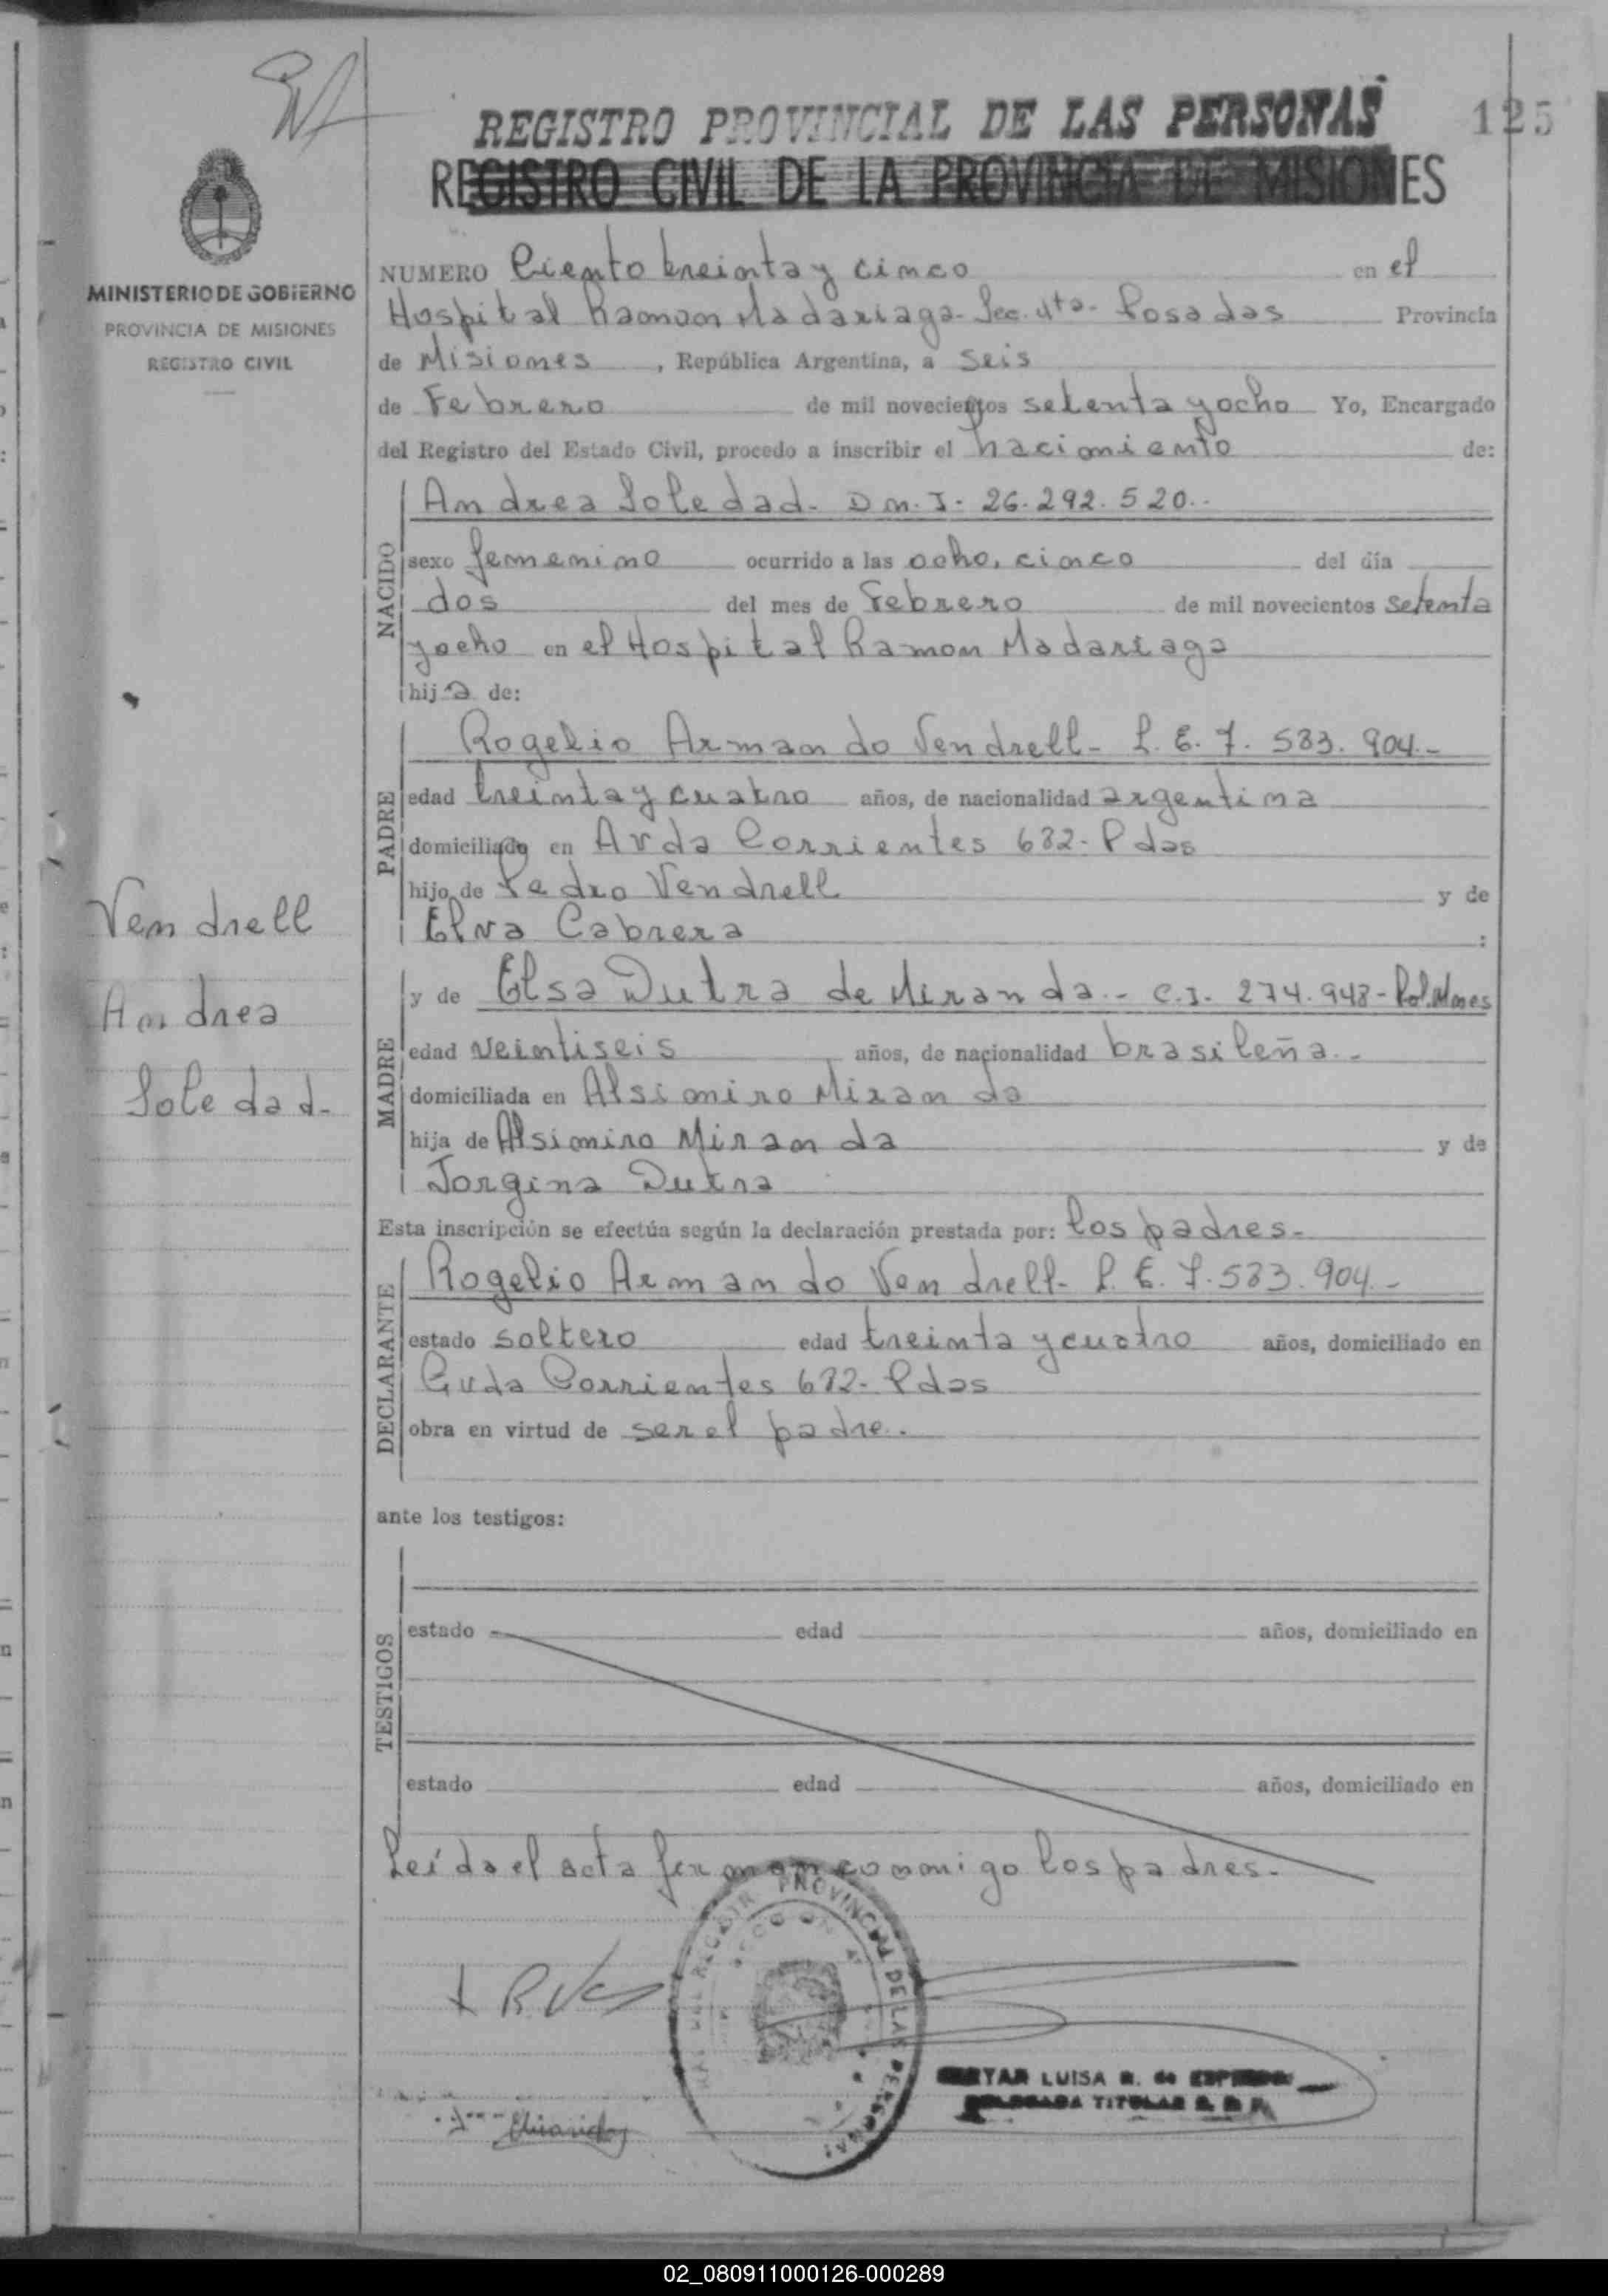 REGISTRO PROVINCIAL DE LAS PERSONAS
125
REGISTRO CIVIL DE LA PROVINCIA DE MISIONES
MINISTERIO DE GOBIERNO
PROVINCIA DE MISIONES
REGISTRO CIVIL
NUMERO Ciento treinta y cinco en el
Hospital Ramon Madariaga - Sec. 4ta - Posadas Provincia
de Misiones, República Argentina, a seis
de Febrero de mil novecientos setenta y ocho Yo, Encargado
del Registro del Estado Civil, procedo a inscribir el nacimiento de:
NACIDO
Andrea Soledad - D.N.I. 26.292.520.-
sexo femenino ocurrido a las ocho, cinco del día
dos del mes de Febrero de mil novecientos setenta
y ocho en el Hospital Ramon Madariaga
hija de:
PADRE
Rogelio Armando Vendrell - L.E. 7.583.904.-
edad treinta y cuatro años, de nacionalidad argentina
domiciliado en Avda Corrientes 682 - Pdas
hijo de Pedro Vendrell y de
Elva Cabrera :
MADRE
y de Elsa Dutra de Miranda.- C.I. 274.948 - Pol. Mnes
edad veintiseis años, de nacionalidad brasileña.-
domiciliada en Alsimiro Miranda
hija de Alsimiro Miranda y de
Jorgina Dutra
Esta inscripción se efectúa según la declaración prestada por: los padres.-
DECLARANTE
Rogelio Armando Vendrell - L.E. 7.583.904.-
estado soltero edad treinta y cuatro años, domiciliado en
Avda Corrientes 682 - Pdas
obra en virtud de ser el padre.
ante los testigos:
TESTIGOS
estado edad años, domiciliado en
estado edad años, domiciliado en
Leída el acta firman conmigo los padres.-
Vendrell
Andrea
Soledad-
PROVINCIAL DE LAS PERSONAS
LUISA R. de
TITULAR
02_080911000126-000289